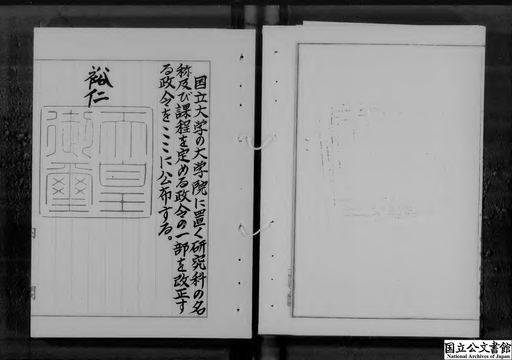 国立大学の大学院に置く研究科の名
称及び課程を定める政令の一部を改正す
る政令をここに公布する。
裕仁
天皇
御璽
内閣
国立公文書館
National Archives of Japan